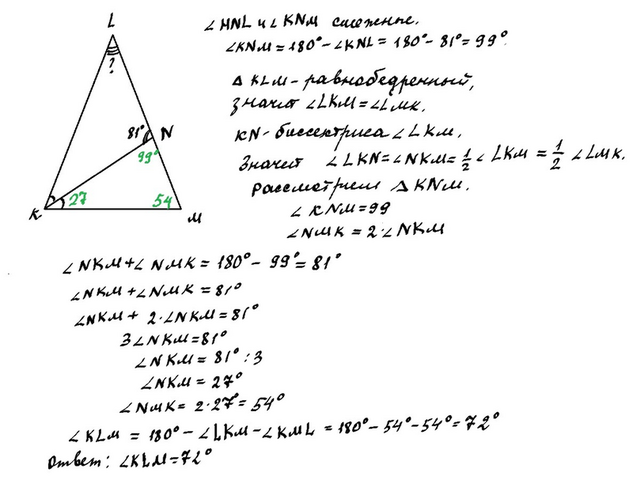 L
?
81°
N
99°
K
27
54
M
∠HNL и ∠KNM смежные.
∠KNM = 180° - ∠KNL = 180° - 81° = 99°.
Δ KLM - равнобедренный,
значит ∠LKM = ∠LMK.
KN - биссектриса ∠LKM.
Значит ∠LKN = ∠NKM = 1/2 ∠LKM = 1/2 ∠LMK.
Рассмотрим Δ KNM.
∠KNM = 99
∠NMK = 2·∠NKM
∠NKM + ∠NMK = 180° - 99° = 81°
∠NKM + ∠NMK = 81°
∠NKM + 2·∠NKM = 81°
3∠NKM = 81°
∠NKM = 81° : 3
∠NKM = 27°
∠NMK = 2·27° = 54°
∠KLM = 180° - ∠LKM - ∠KML = 180° - 54° - 54° = 72°
Ответ: ∠KLM = 72°